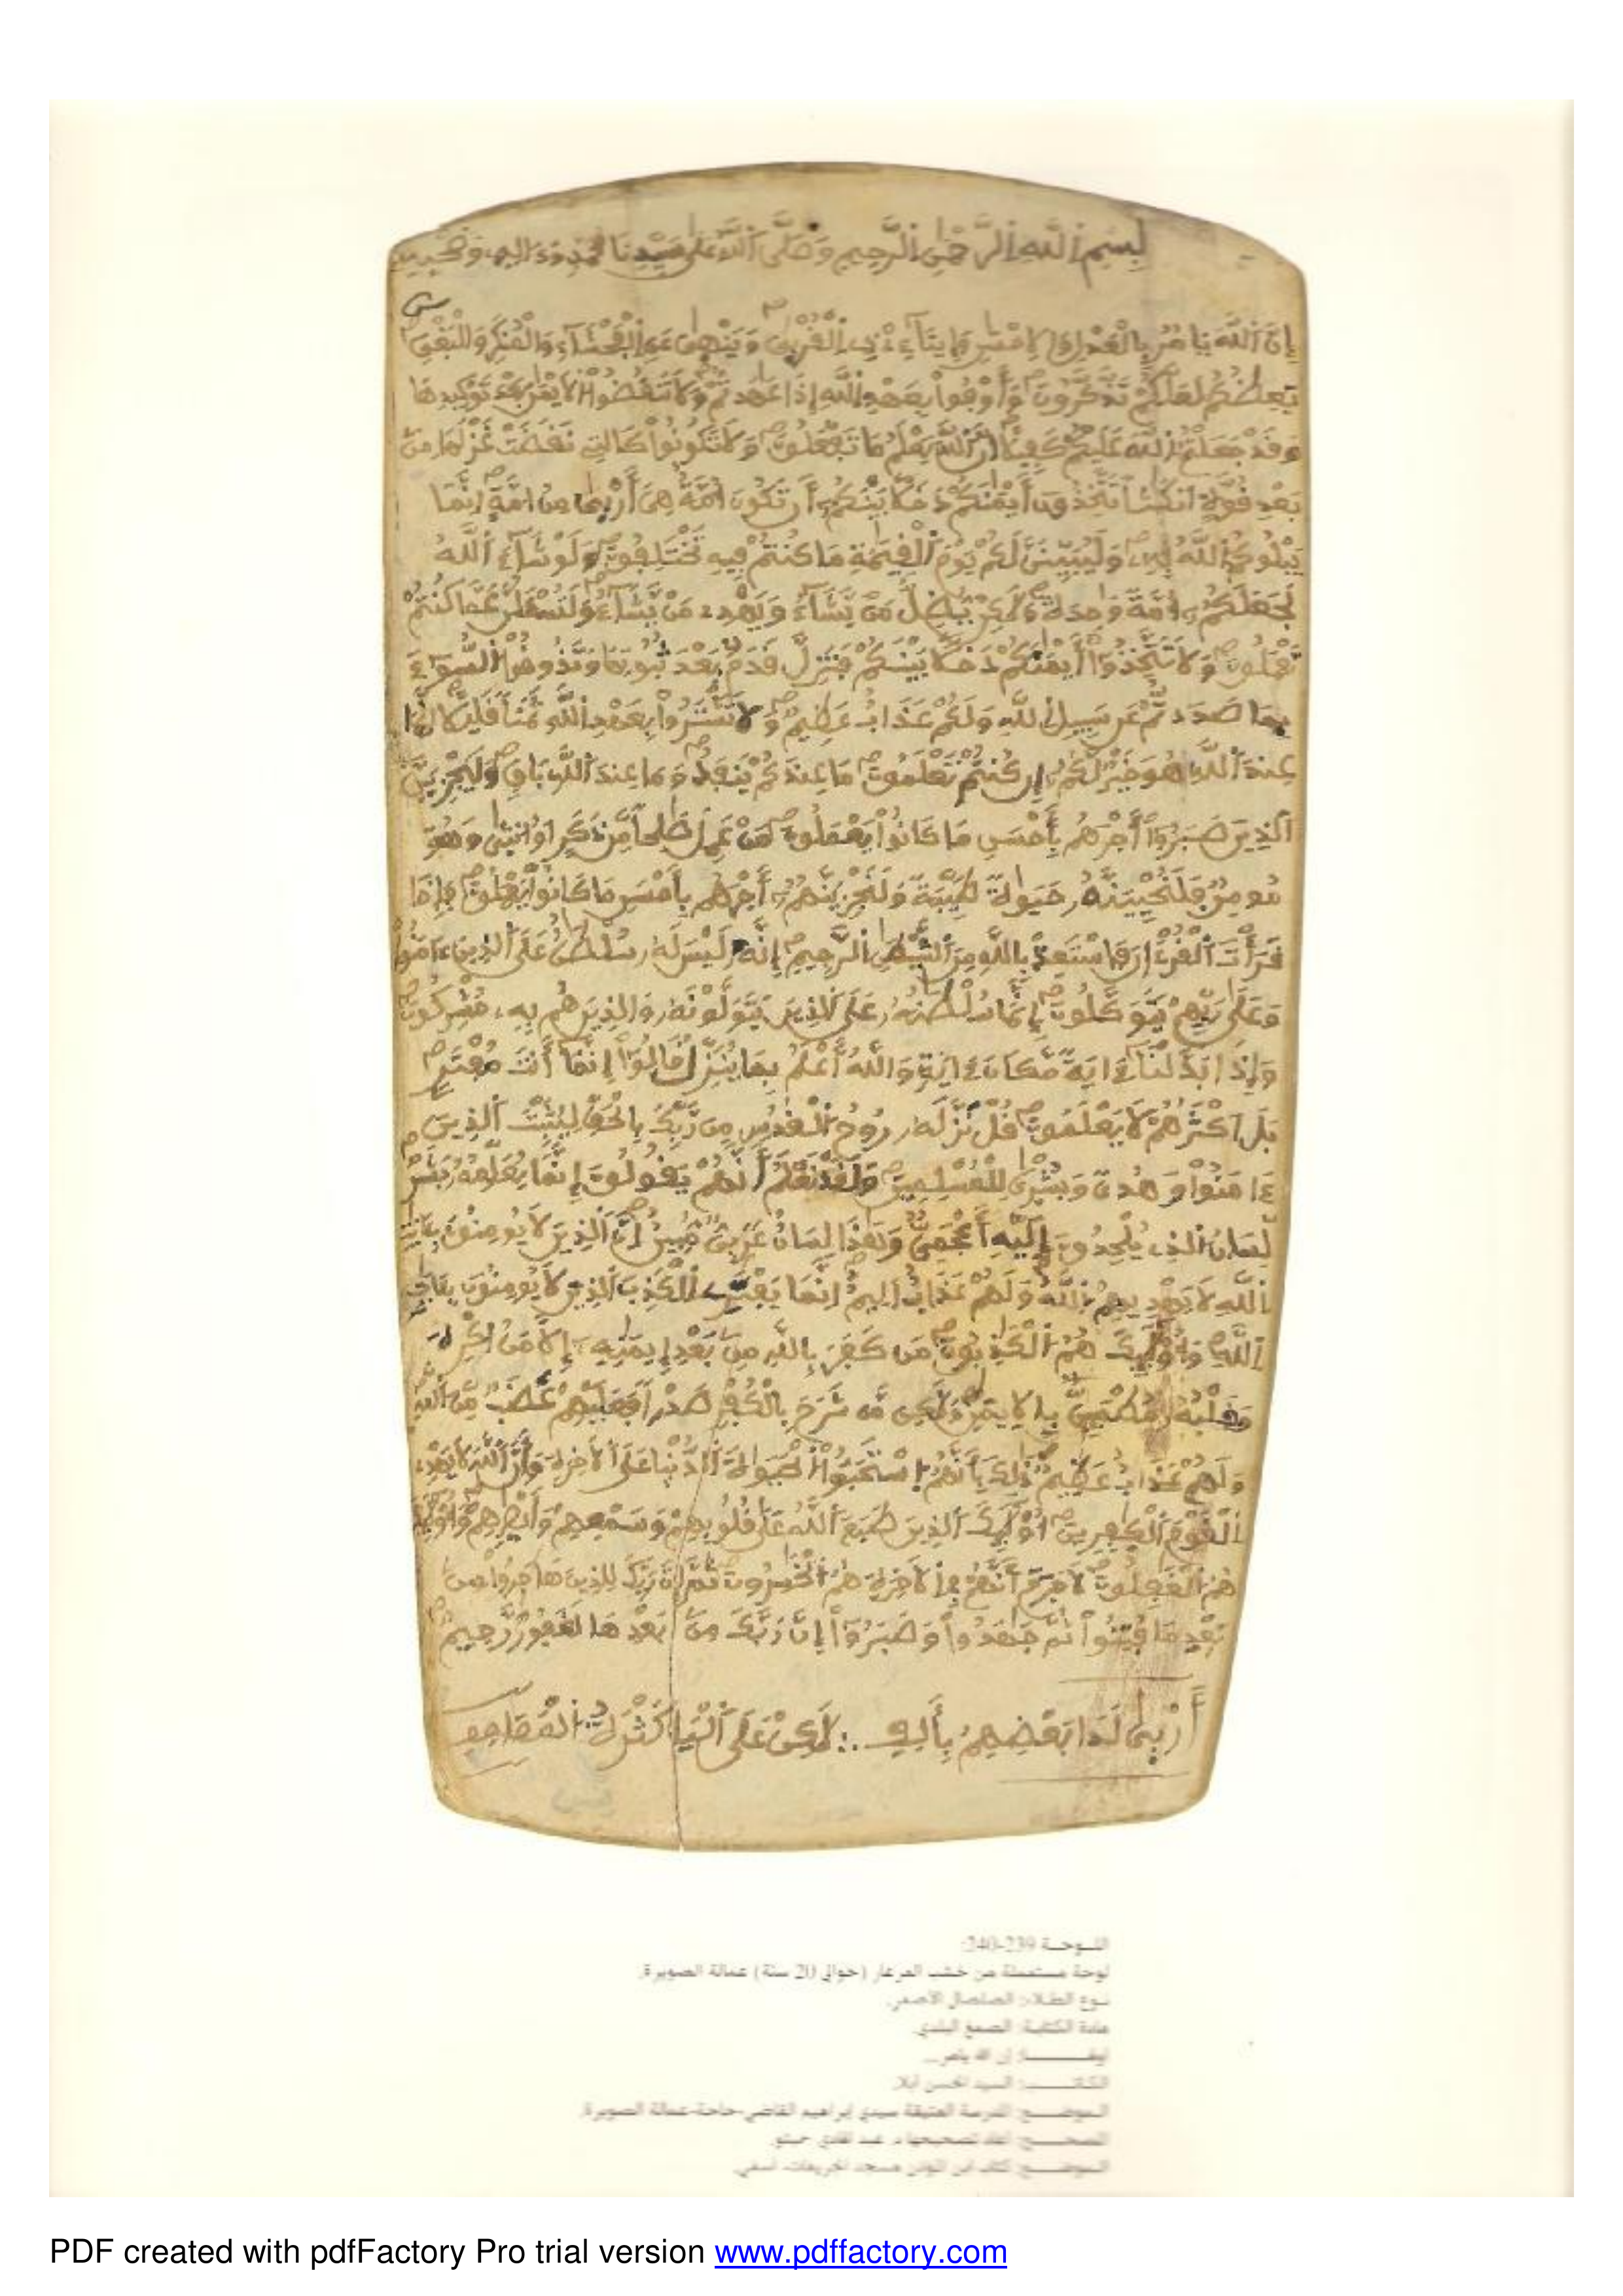 بسم الله الرحمن الرحيم وصلى الله على سيدنا محمد وءاله وصحبه
إن الله يامر بالعدل والاحسن وإيتاء ذي القربى وينهى عن الفحشاء والمنكر والبغي
يعظكم لعلكم تذكرون وأوفوا بعهد الله إذا عهدتم ولا تنقضوا الايمن بعد توكيدها
وقد جعلتم الله عليكم كفيلا ان الله يعلم ما تفعلون ولا تكونوا كالتي نقضت غزلها من
بعد قوة انكثا تتخذون أيمنكم دخلا بينكم أن تكون امة هي أربى من امة إنما
يبلوكم الله به وليبينن لكم يوم القيمة ما كنتم فيه تختلفون ولو شاء الله
لجعلكم أمة وحدة ولكن يضل من يشاء ويهدي من يشاء ولتسئلن عما كنتم
تعملون ولا تتخذوا أيمنكم دخلا بينكم فتزل قدم بعد ثبوتها وتذوقوا السوء
بما صددتم عن سبيل الله ولكم عذاب عظيم ولا تشتروا بعهد الله ثمنا قليلا انما
عند الله هو خير لكم إن كنتم تعلمون ما عندكم ينفد وما عند الله باق وليجزين
الذين صبروا أجرهم بأحسن ما كانوا يعملون من عمل صلحا من ذكر اوانثى وهو
مومن فلنحيينه حيوة طيبة ولنجزينهم أجرهم بأحسن ما كانوا يعملون فإذا
قرأت القرءان فاستعذ بالله من الشيطن الرجيم إنه ليس له سلطن على الذين ءامنوا
وعلى ربهم يتوكلون إنما سلطنه على الذين يتولونه والذين هم به مشركون
وإذا بدلنا ءاية مكان ءاية والله أعلم بما ينزل قالوا إنما أنت مفتر
بل اكثرهم لا يعلمون قل نزله روح القدس من ربك بالحق ليثبت الذين
ءامنوا وهدى وبشرى للمسلمين ولقد نعلم أنهم يقولون إنما يعلمه بشر
لسان الذي يلحدون إليه أعجمي وهذا لسان عربي مبين إن الذين لا يومنون بئايت
الله لا يهديهم الله ولهم عذاب اليم إنما يفتري الكذب الذين لا يومنون بئايت
الله وأولئك هم الكذبون من كفر بالله من بعد إيمنه إلا من اكره
وقلبه مطمئن بالايمن ولكن من شرح بالكفر صدرا فعليهم غضب من الله
ولهم عذاب عظيم ذلك بأنهم استحبوا الحيوة الدنيا على الاخرة وأن الله لا يهدي
القوم الكفرين أولئك الذين طبع الله على قلوبهم وسمعهم وأبصرهم وأولئك
هم الغفلون لا جرم أنهم في الاخرة هم الخسرون ثم إن ربك للذين هاجروا من
بعد ما فتنوا ثم جهدوا وصبروا إن ربك من بعدها لغفور رحيم
أربى لدا بعضهم بألف .: لكن على اليا كثرة
اللوحة 239-240:
لوحة مستعملة من خشب العرعار (حوالي 20 سنة) عمالة الصويرة.
نوع الطلاء: الصلصال الأصفر.
مادة الكتابة: الصمغ البلدي.
إن الله يامر...
الكاتب: السيد الحسن
الموضع: المدرسة العتيقة سيدي إبراهيم القاضي-حاحة-عمالة الصويرة.
المصحح: أعاد تصحيحها د. عبد الهادي حميتو.
الموضع: كتاب ابن المؤذن مسجد
PDF created with pdfFactory Pro trial version www.pdffactory.com